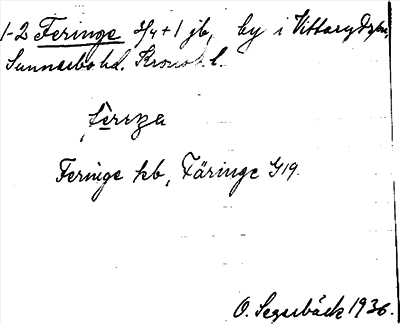 1-2 Feringe 3/4+1 jb, by i Vittaryds sn,
Sunnerbo hd. Kronob. l.
fèrrza
Feringe kb, Färinge G19.
O. Segerbäck 1936.